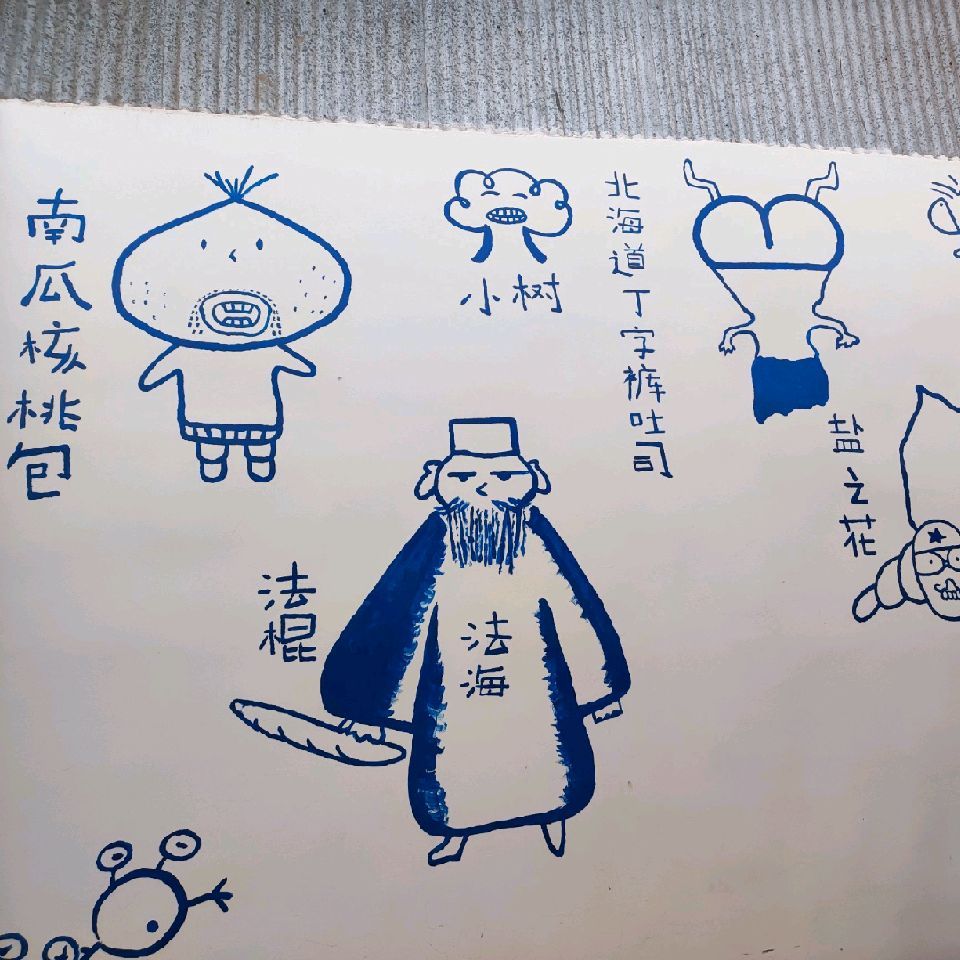 南瓜核桃包
小树
北海道丁字裤吐司
盐之花
法棍
法海